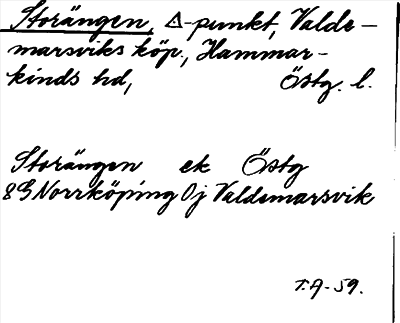 Storängen, △-punkt, Valde-
marsviks köp., Hammar-
kinds hd, Östg. l.
Storängen ek Östg
8G Norrköping 0j Valdemarsvik
T.A-59.